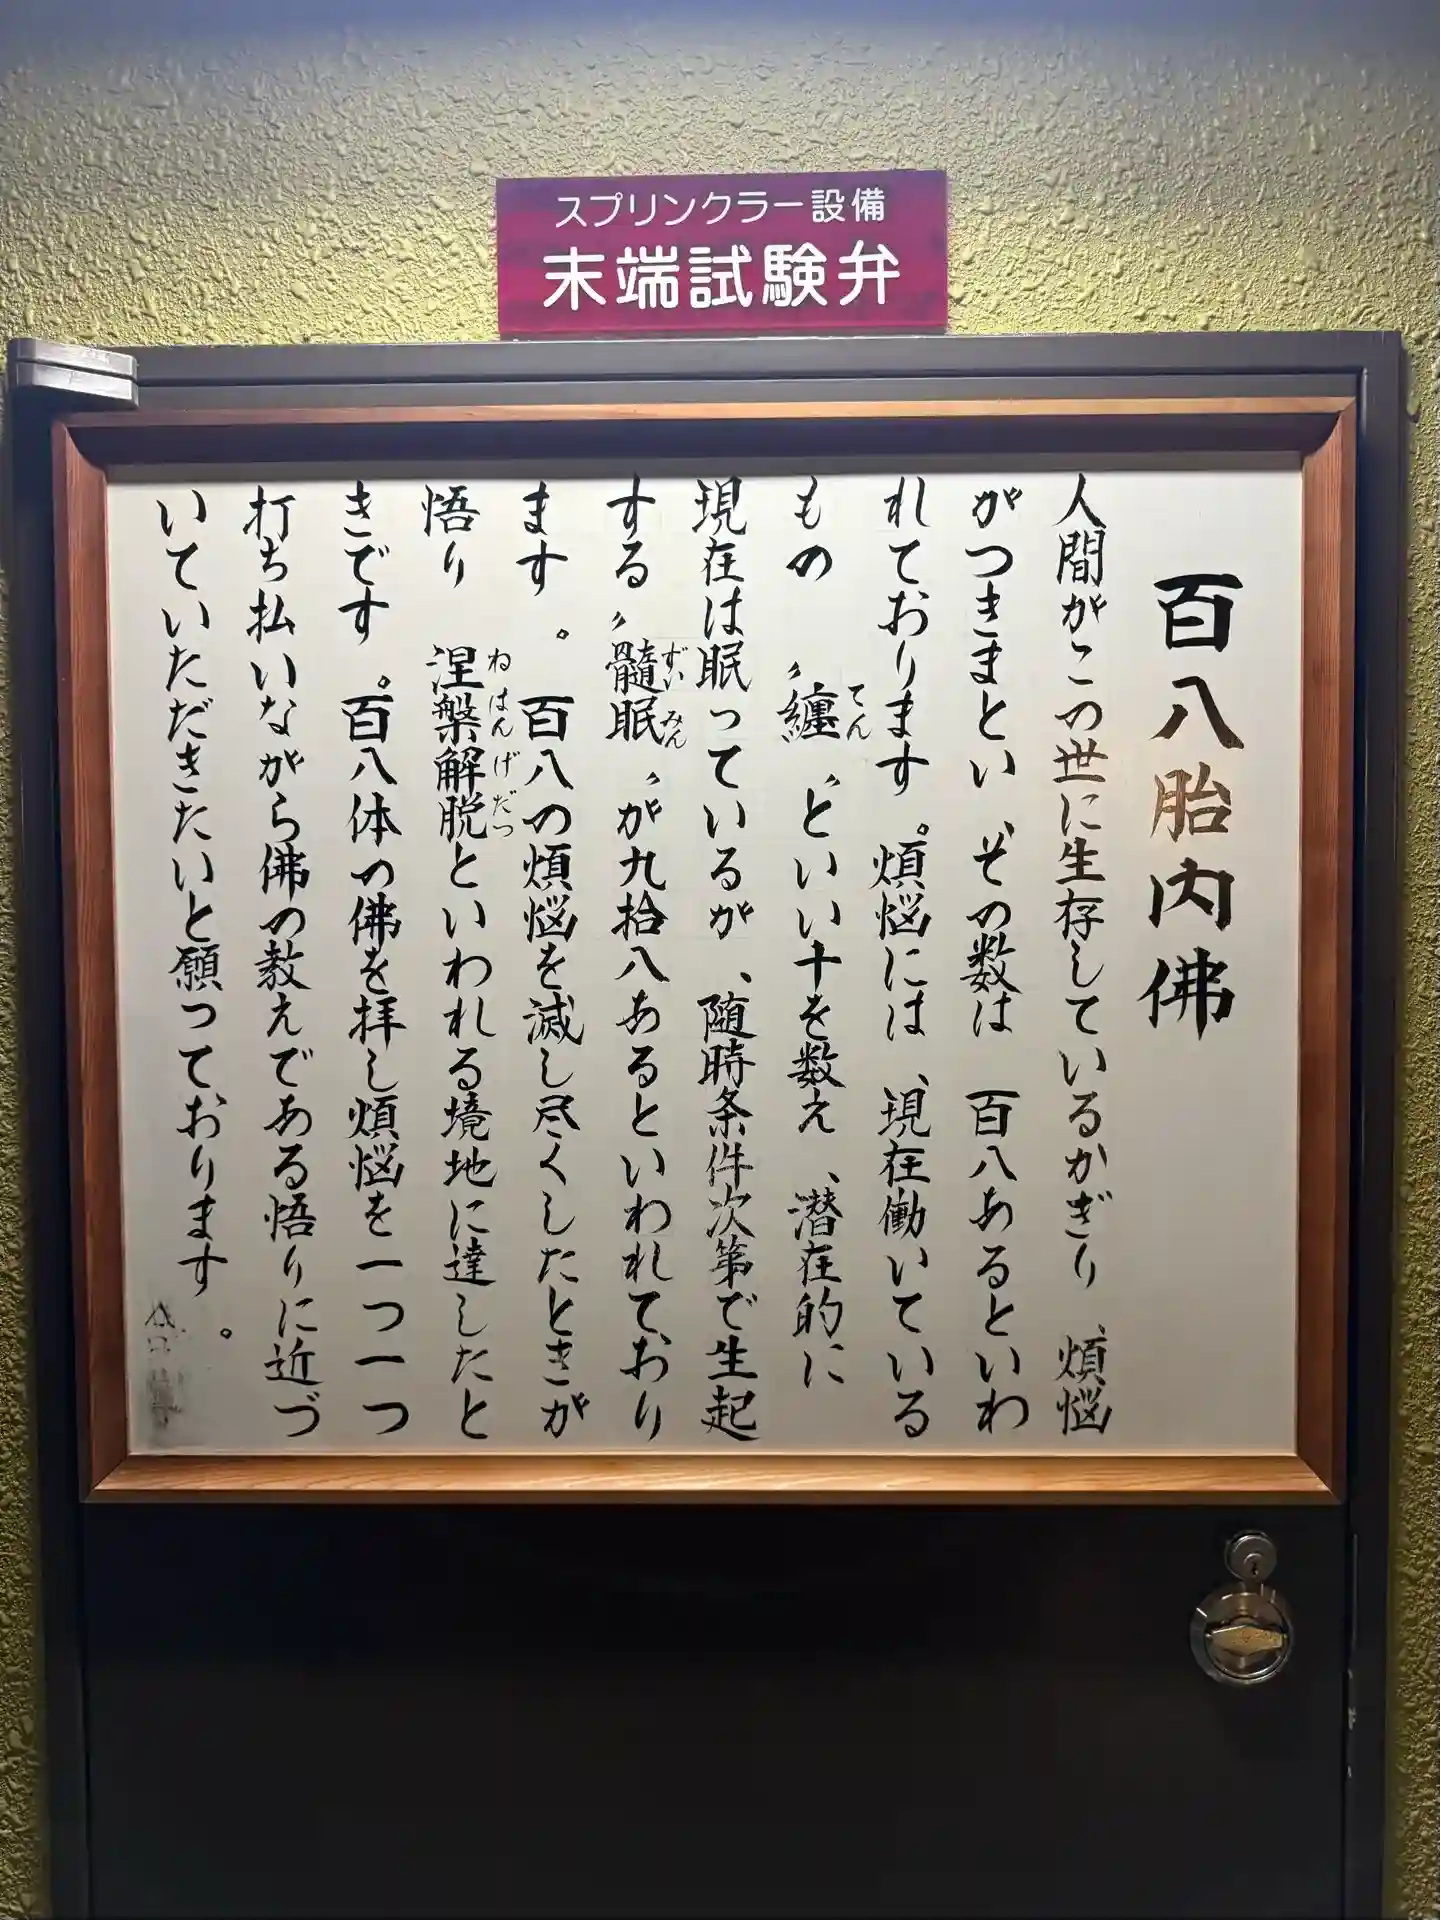 スプリンクラー設備
末端試験弁
百八胎内佛
人間がこの世に生存しているかぎり、煩悩
がつきまとい、その数は 百八あるといわ
れております。煩悩には、現在働いている
もの 〃纏〃といい十を数え、潜在的に
てん
現在は眠っているが、随時条件次第で生起
する〃髓眠〃が九拾八あるといわれており
ずいみん
ます。百八の煩悩を滅し尽くしたときが
悟り 涅槃解脱といわれる境地に達したと
ねはんげだつ
きです。百八体の佛を拝し煩悩を一つ一つ
打ち払いながら佛の教えである悟りに近づ
いていただきたいと願っております。